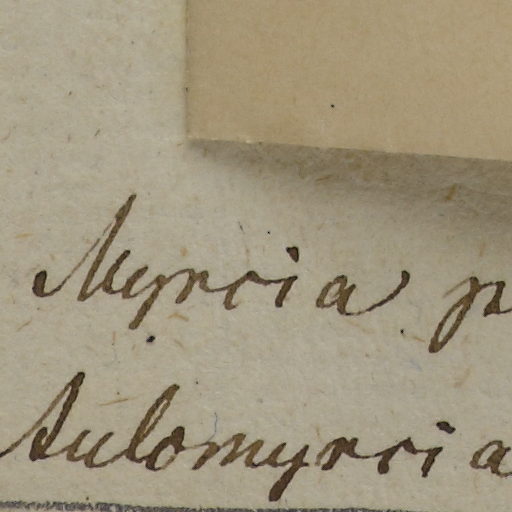 Myrcia p
Aulomyrcia